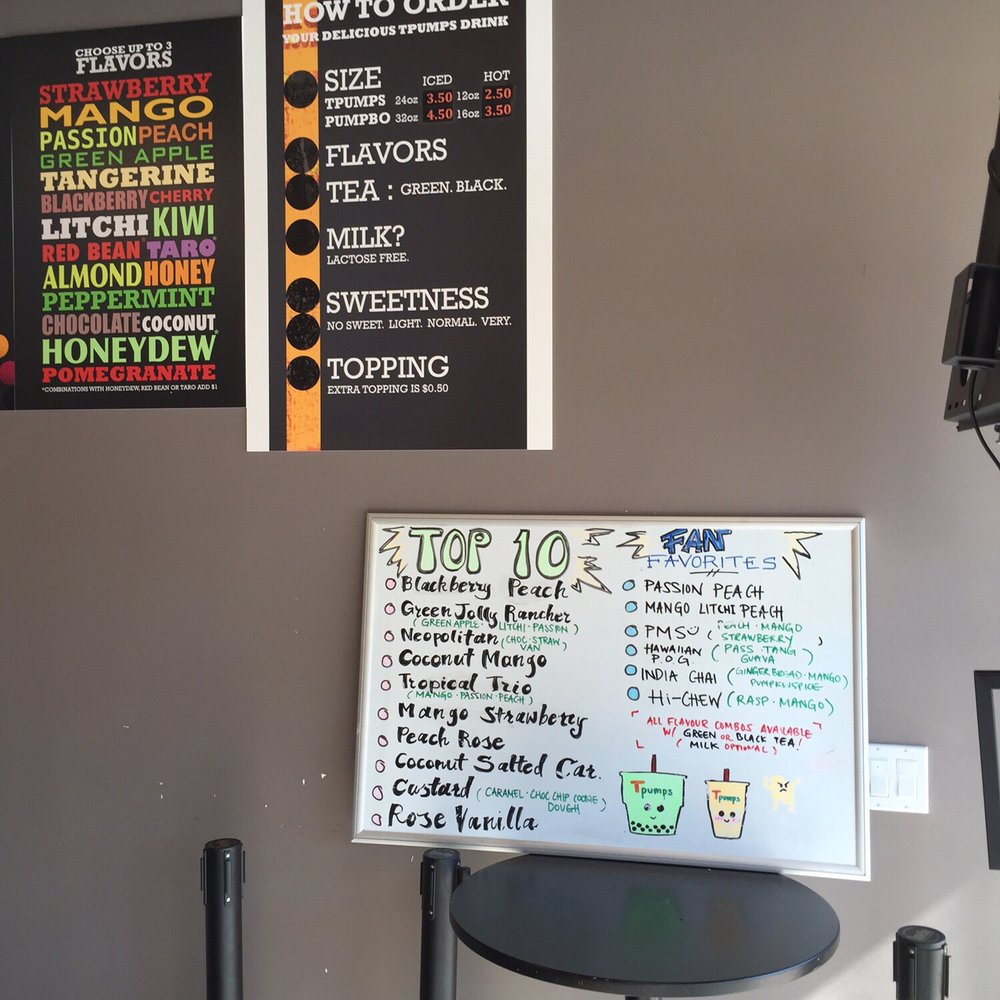 CHOOSE UP TO 3
FLAVORS
STRAWBERRY
MANGO
PASSION PEACH
GREEN APPLE
TANGERINE
BLACKBERRY CHERRY
LITCHI KIWI
RED BEAN* TARO*
ALMOND HONEY
PEPPERMINT
CHOCOLATE COCONUT
HONEYDEW*
POMEGRANATE
*COMBINATIONS WITH HONEYDEW, RED BEAN OR TARO ADD $1
HOW TO ORDER
YOUR DELICIOUS TPUMPS DRINK
SIZE ICED HOT
TPUMPS 24oz 3.50 12oz 2.50
PUMPBO 32oz 4.50 16oz 3.50
FLAVORS
TEA : GREEN. BLACK.
MILK?
LACTOSE FREE.
SWEETNESS
NO SWEET. LIGHT. NORMAL. VERY.
TOPPING
EXTRA TOPPING IS $0.50
TOP 10
Blackberry Peach
Green Jolly Rancher
(GREEN APPLE · LITCHI · PASSION)
Neopolitan (CHOC · STRAW
VAN)
Coconut Mango
Tropical Trio
(MANGO · PASSION · PEACH)
Mango Strawberry
Peach Rose
Coconut Salted Car.
Custard (CARAMEL · CHOC CHIP COOKIE
DOUGH)
Rose Vanilla
FAN
FAVORITES
PASSION PEACH
MANGO LITCHI PEACH
PMS (PEACH · MANGO
STRAWBERRY)
HAWAIIAN (PASS · TANG
P.O.G. GUAVA)
INDIA CHAI (GINGERBREAD · MANGO
PUMPKIN SPICE)
Hi-CHEW (RASP · MANGO)
ALL FLAVOUR COMBOS AVAILABLE
W/ GREEN or BLACK TEA!
(MILK OPTIONAL)
Tpumps
Tpumps